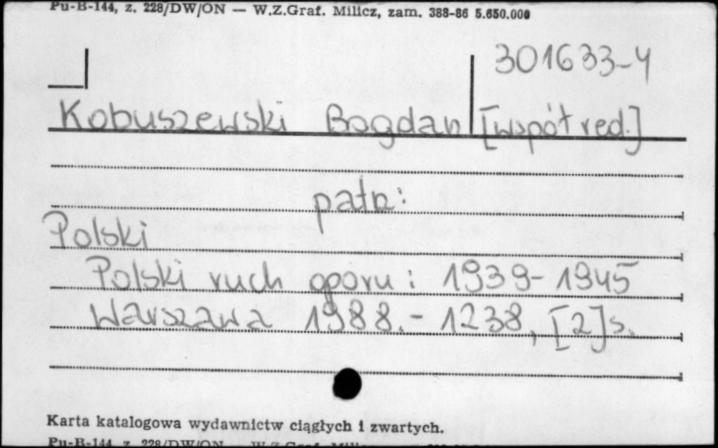 Pu-B-144, z. 228/DW/ON — W.Z.Graf. Milicz, zam. 388-86 5.650.000
301633-4
Kobuszewski Bogdan [współred.]
patrz:
Polski
Polski ruch oporu : 1939-1945
Warszawa 1988.- 1238, [2]s.
Karta katalogowa wydawnictw ciągłych i zwartych.
Pu-B-144, z. 228/DW/ON — W.Z.Graf.